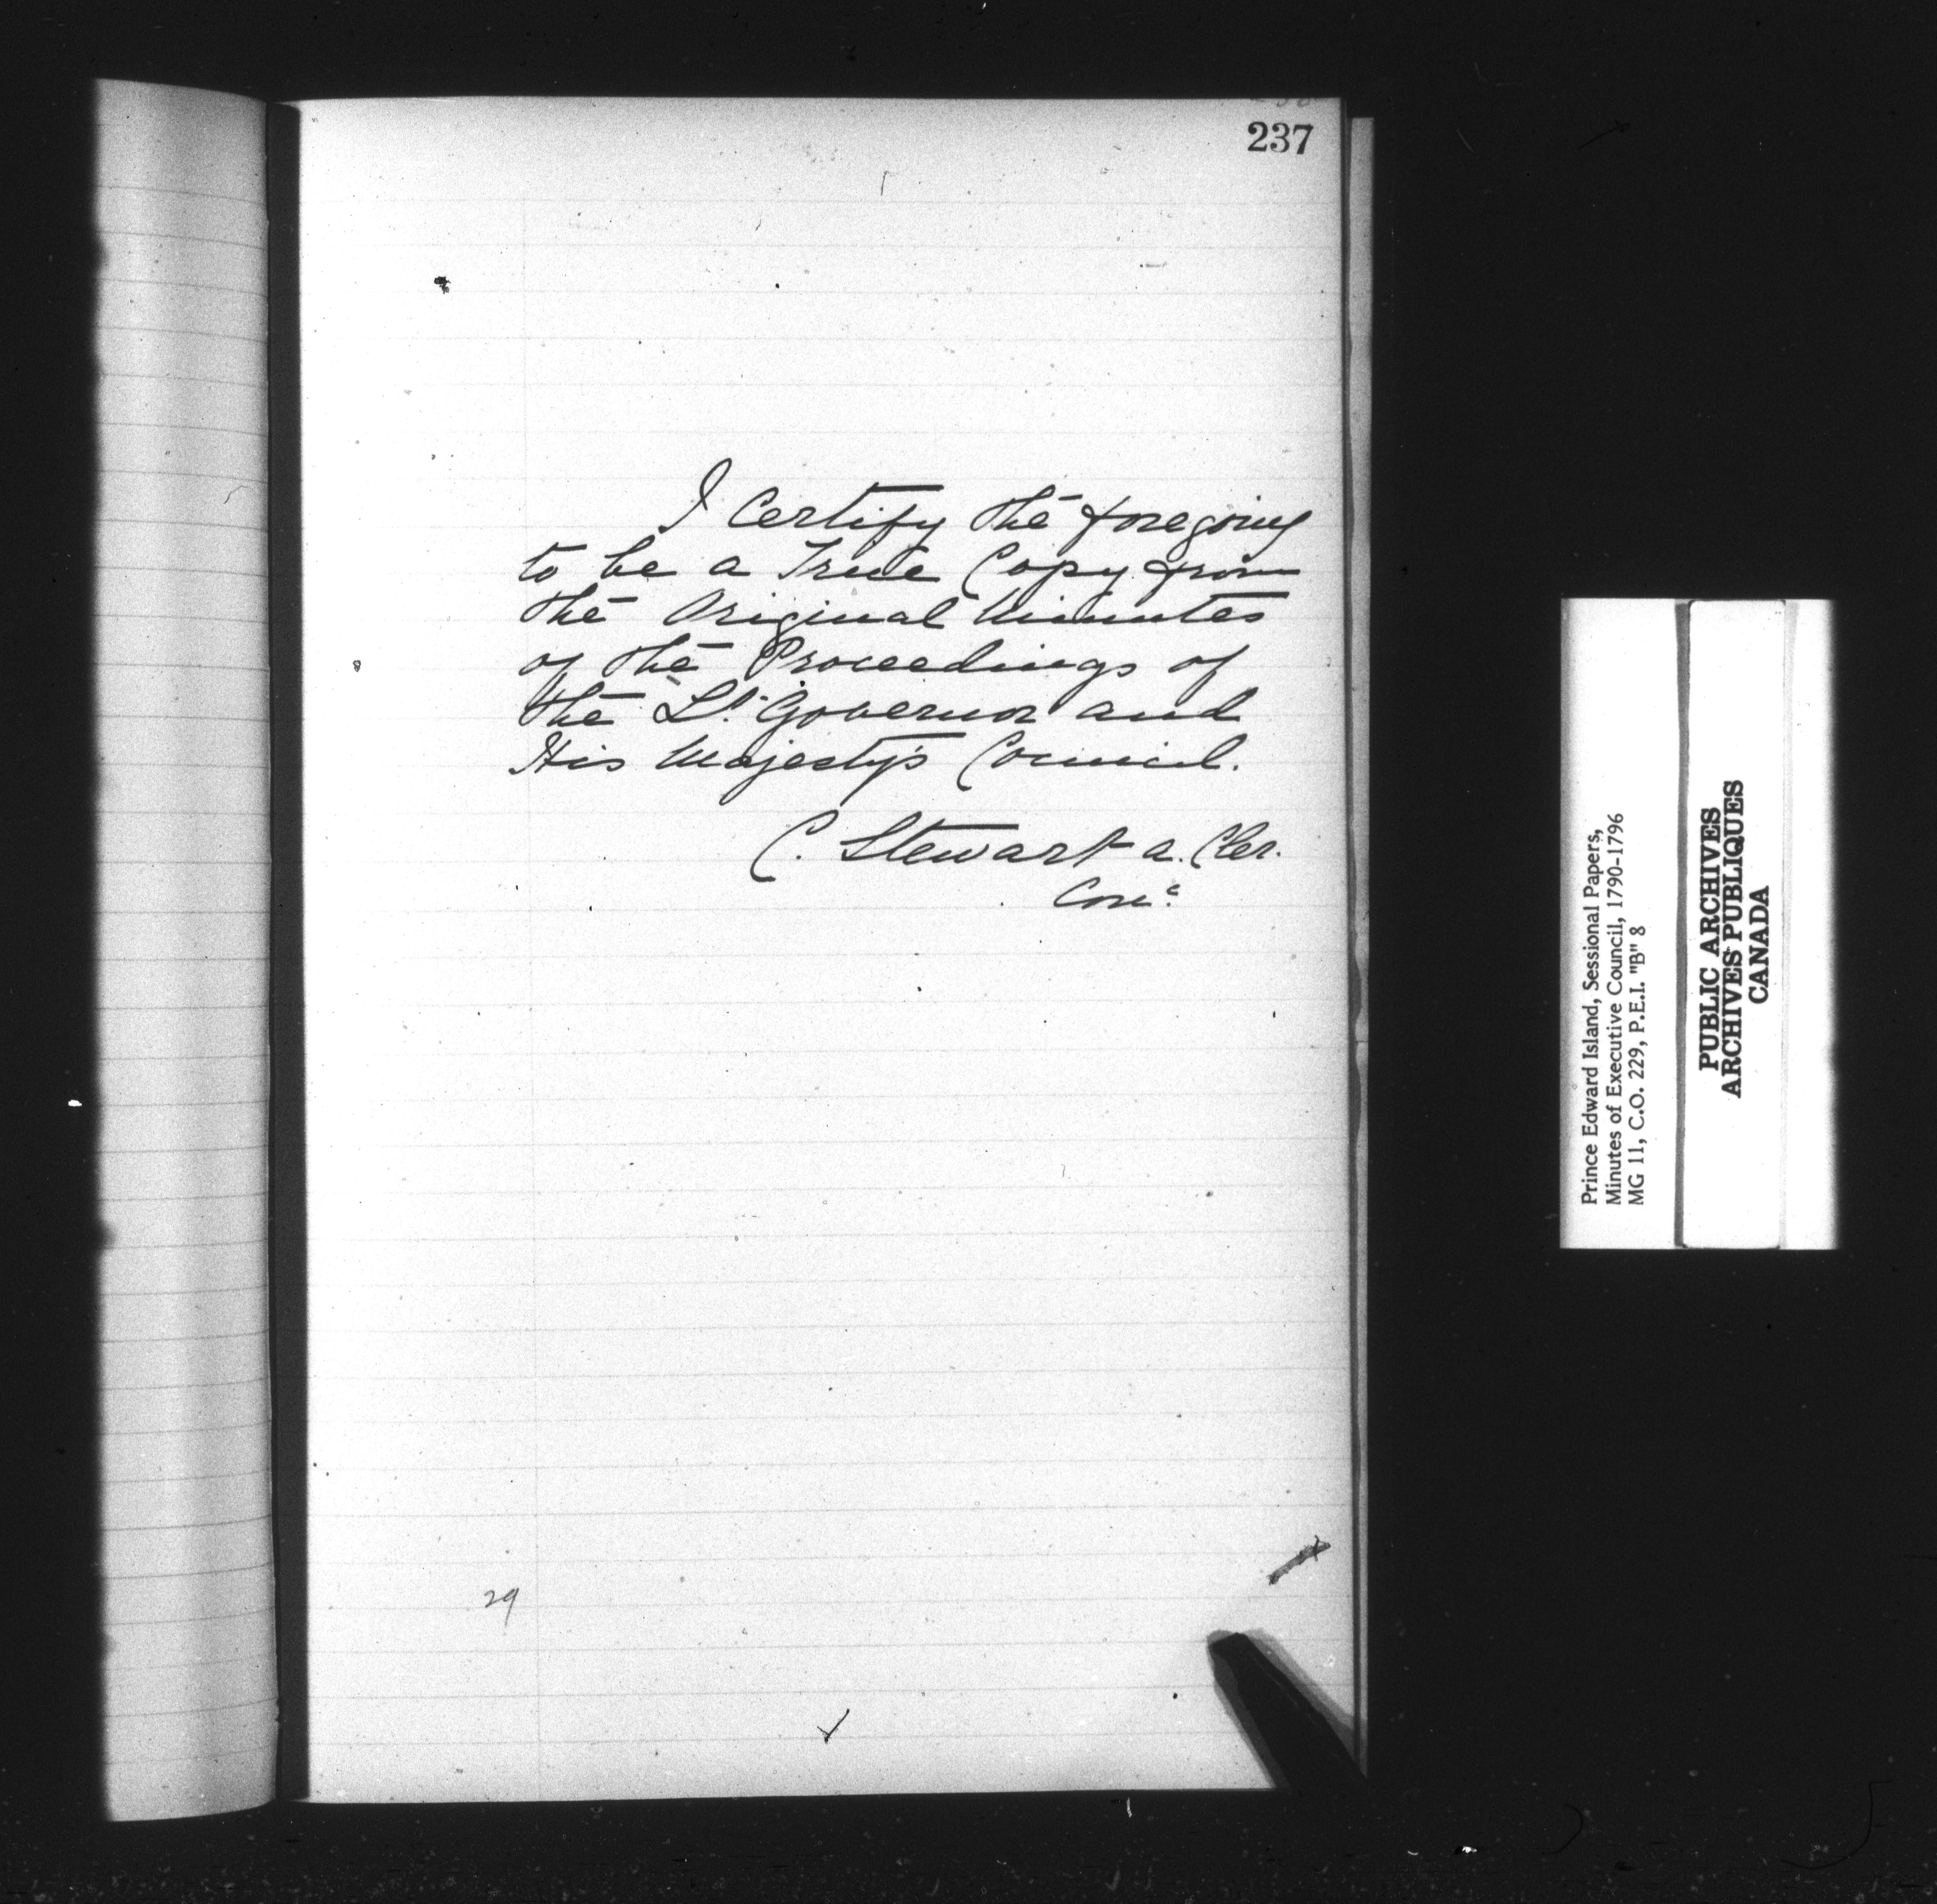 237
I Certify the foregoing
to be a True Copy from
the Original Minutes
of the Proceedings of
the Lt. Governor and
His Majesty's Council.
C. Stewart a. Cler.
Conc.
29
Prince Edward Island, Sessional Papers,
Minutes of Executive Council, 1790-1796
MG 11, C.O. 229, P.E.I. "B" 8
PUBLIC ARCHIVES
ARCHIVES PUBLIQUES
CANADA